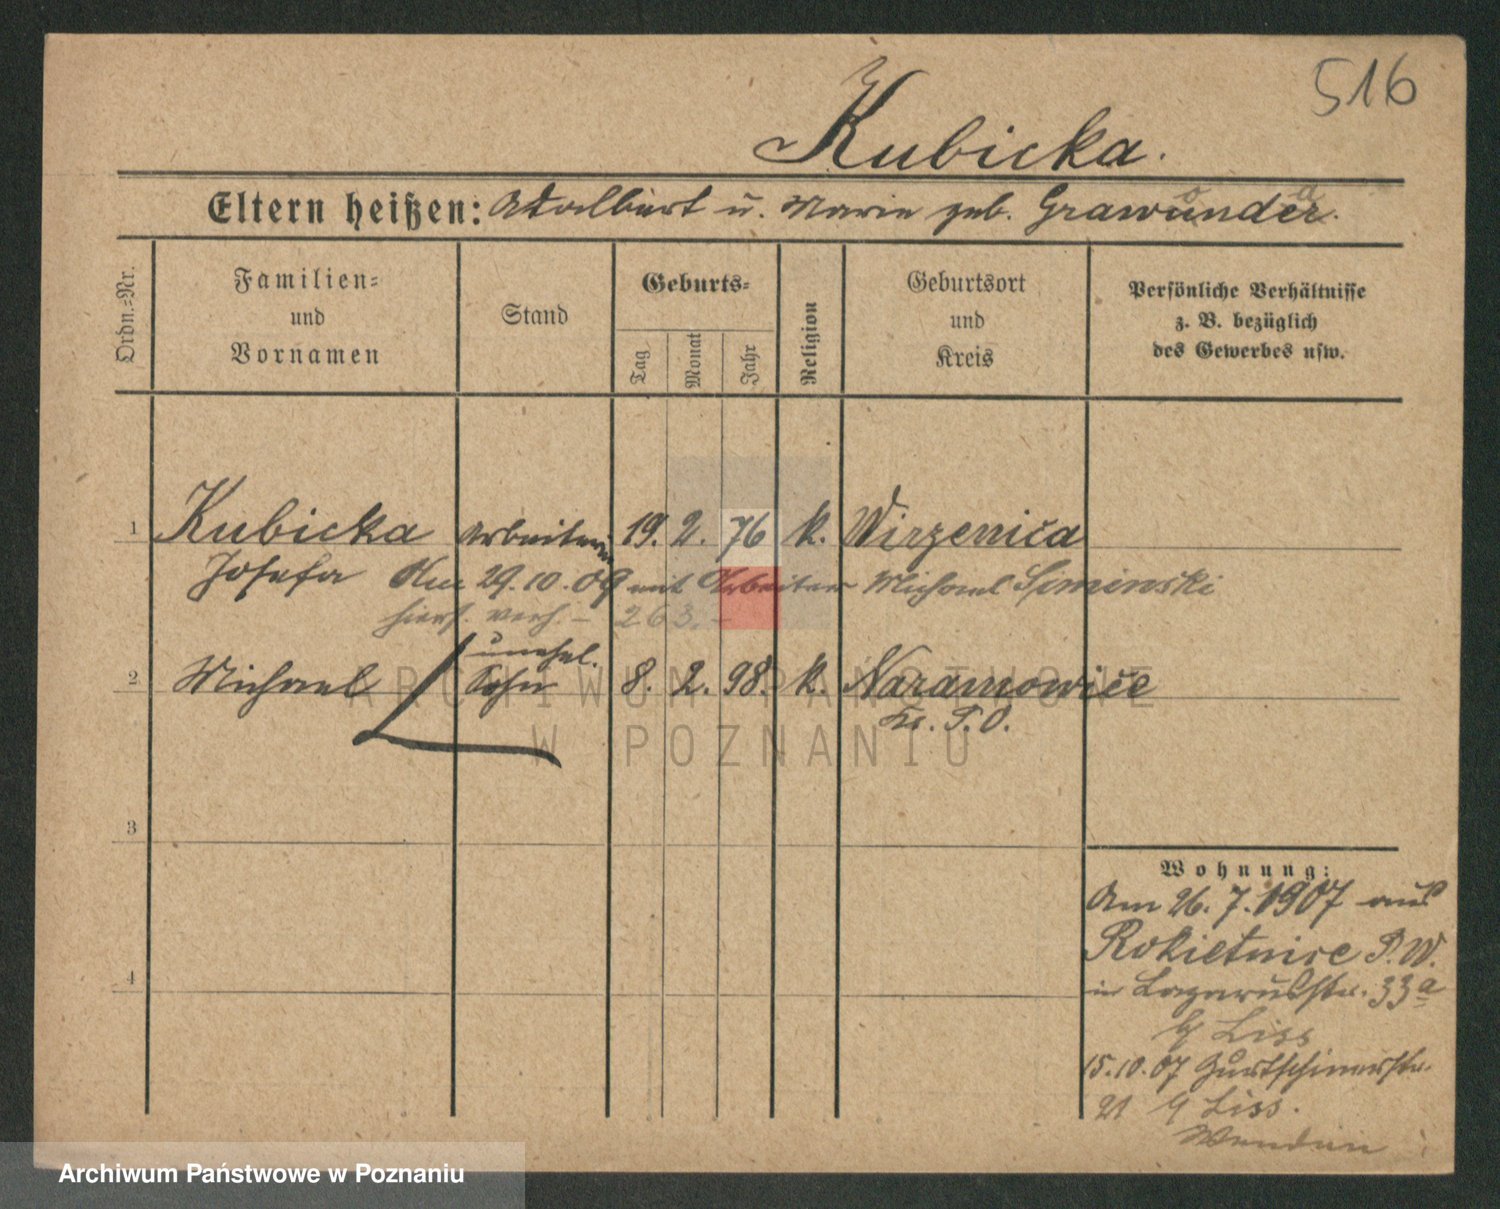 516
Kubicka.
Eltern heißen: Adalbert u. Marie geb. Grawunder.
Ordn.-Nr.
Familien-
und
Vornamen
Stand
Geburts-
Tag
Monat
Jahr
Religion
Geburtsort
und
Kreis
Persönliche Verhältnisse
z. B. bezüglich
des Gewerbes usw.
1 Kubicka Arbeiterin 19. 2. 76 k. Wirzenica
Josefa Am 29.10.09 mit Arbeiter Michael Siminski
hiers. verh. - 263. -
unehel.
2 Michael Sohn 8. 2. 98. k. Naramowice
Kr. P. O.
ARCHIWUM PAŃSTWOWE
W POZNANIU
3
Wohnung:
Am 26. 7. 1907 aus
Rokietnice P. W.
in Lazarusstr. 33a
b/ Liss
15.10.07 Gurtschinerstr.
21 b/ Liss.
4
Archiwum Państwowe w Poznaniu